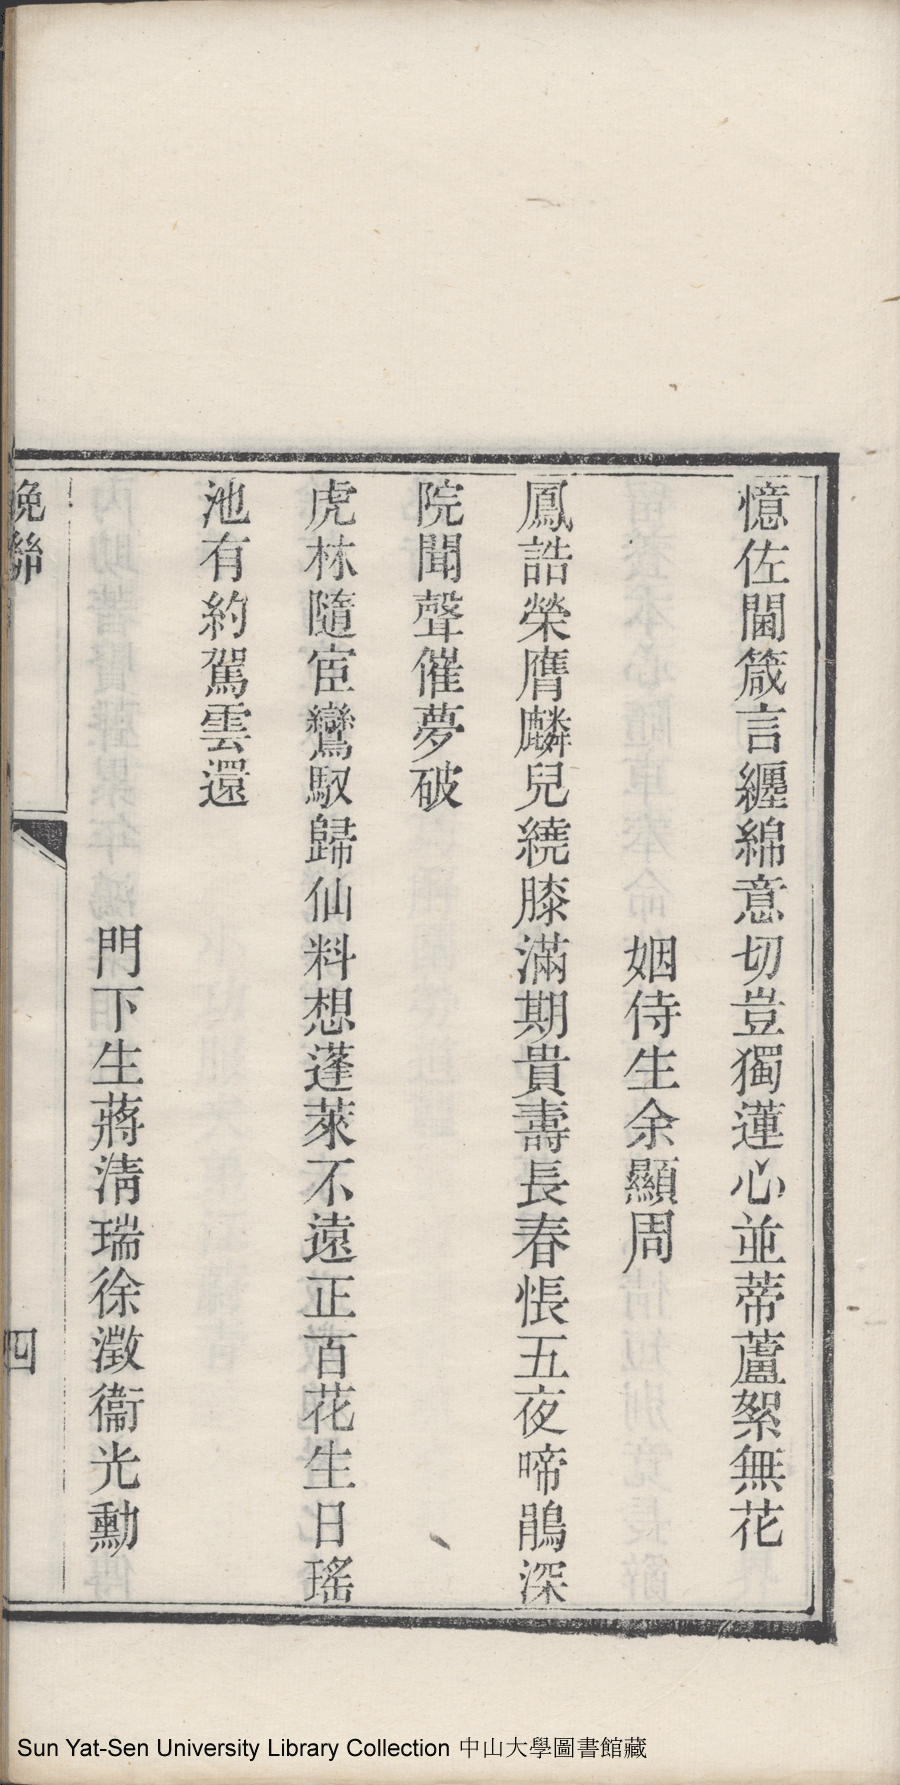 憶佐閫箴言纏綿意切豈獨蓮心並蒂蘆絮無花
姻侍生余顯周
鳳誥榮膺麟兒繞膝滿期貴壽長春悵五夜啼鵑深
院聞聲催夢破
虎林隨宦鸞馭歸仙料想蓬萊不遠正百花生日瑤
池有約駕雲還
門下生蔣清瑞徐澂衞光勳
挽聯
四
Sun Yat-Sen University Library Collection 中山大學圖書館藏